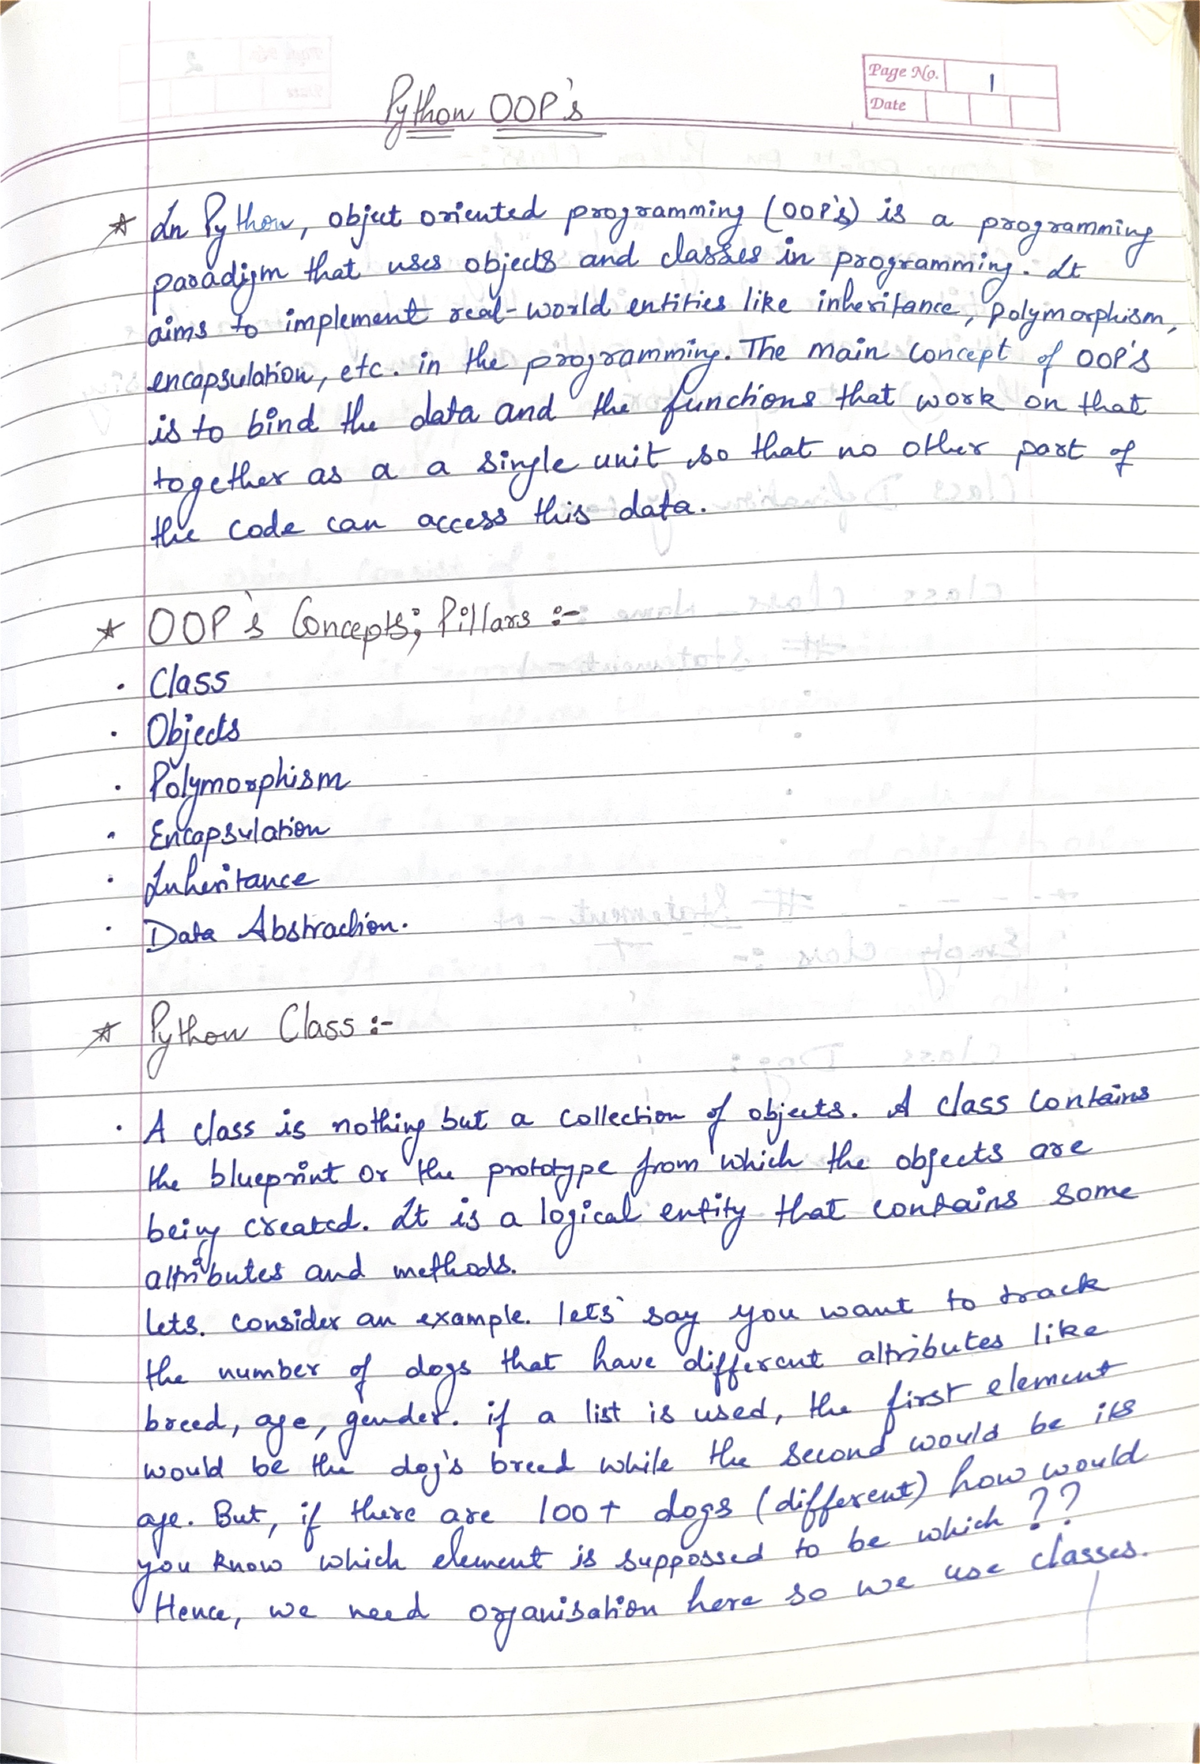 Page No. 1
Date
Python OOP's
* In Python, object oriented programming (OOP's) is a programming
paradigm that uses objects and classes in programming. It
aims to implement real-world entities like inheritance, polymorphism,
encapsulation, etc. in the programming. The main concept of OOP's
is to bind the data and the functions that work on that
together as a a single unit so that no other part of
the code can access this data.
* OOP's Concepts; Pillars :-
• Class
• Objects
• Polymorphism
• Encapsulation
• Inheritance
• Data Abstraction.
* Python Class :-
• A class is nothing but a collection of objects. A class contains
the blueprint or the prototype from which the objects are
being created. It is a logical entity that contains some
attributes and methods.
Lets. consider an example. lets' say you want to track
the number of dogs that have different attributes like
breed, age, gender. if a list is used, the first element
would be the dog's breed while the second would be its
age. But, if there are 100+ dogs (different) how would
you know which element is suppossed to be which ??
Hence, we need organisation here so we use classes.